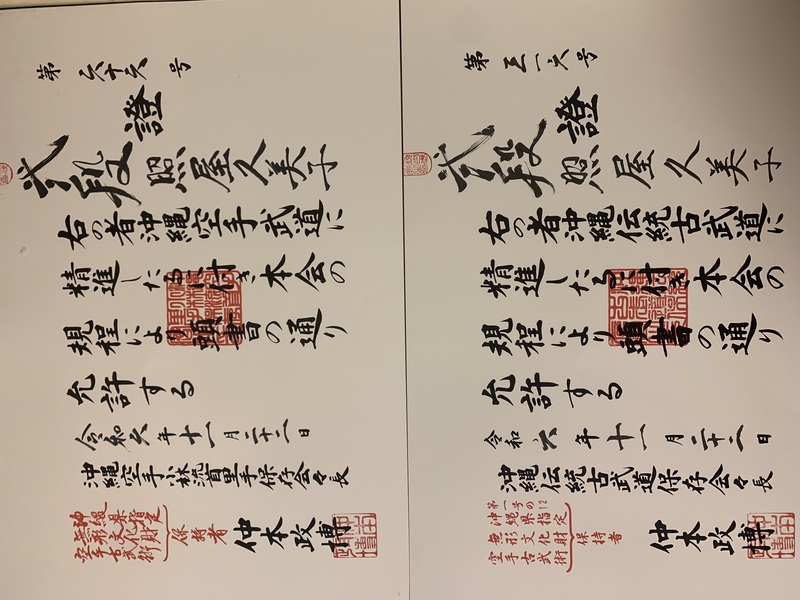 第六十六号
證
弐段 照屋久美子
右の者沖縄空手武道に
精進したるに付き本会の
規程により頭書の通り
允許する
令和六年十一月二十二日
沖縄空手小林流首里手保存会々長
沖縄県指定
無形文化財
空手古武術
保持者
仲本政博
第三一六号
證
弐段 照屋久美子
右の者沖縄伝統古武道に
精進したるに付き本会の
規程により頭書の通り
允許する
令和六年十一月二十二日
沖縄伝統古武道保存会々長
第一号の12
沖縄県指定
無形文化財
空手古武術
保持者
仲本政博